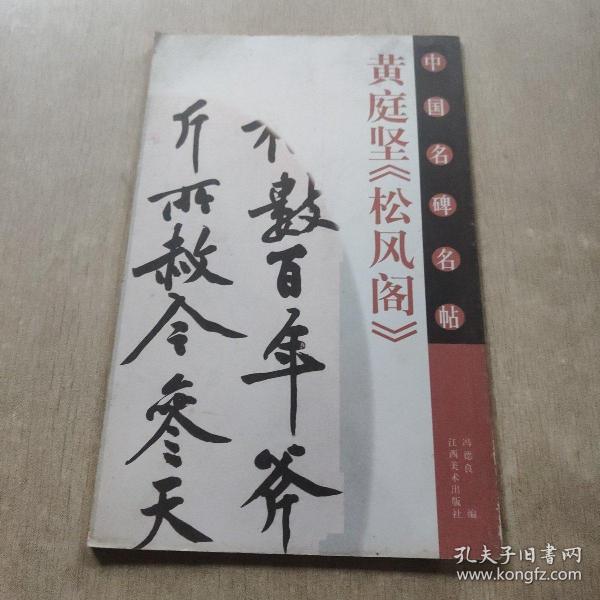 中国名碑名帖
黄庭坚《松风阁》
冯德良 编
江西美术出版社
不数百年斧
斤所赦今参天
孔夫子旧书网
www.kongfz.com